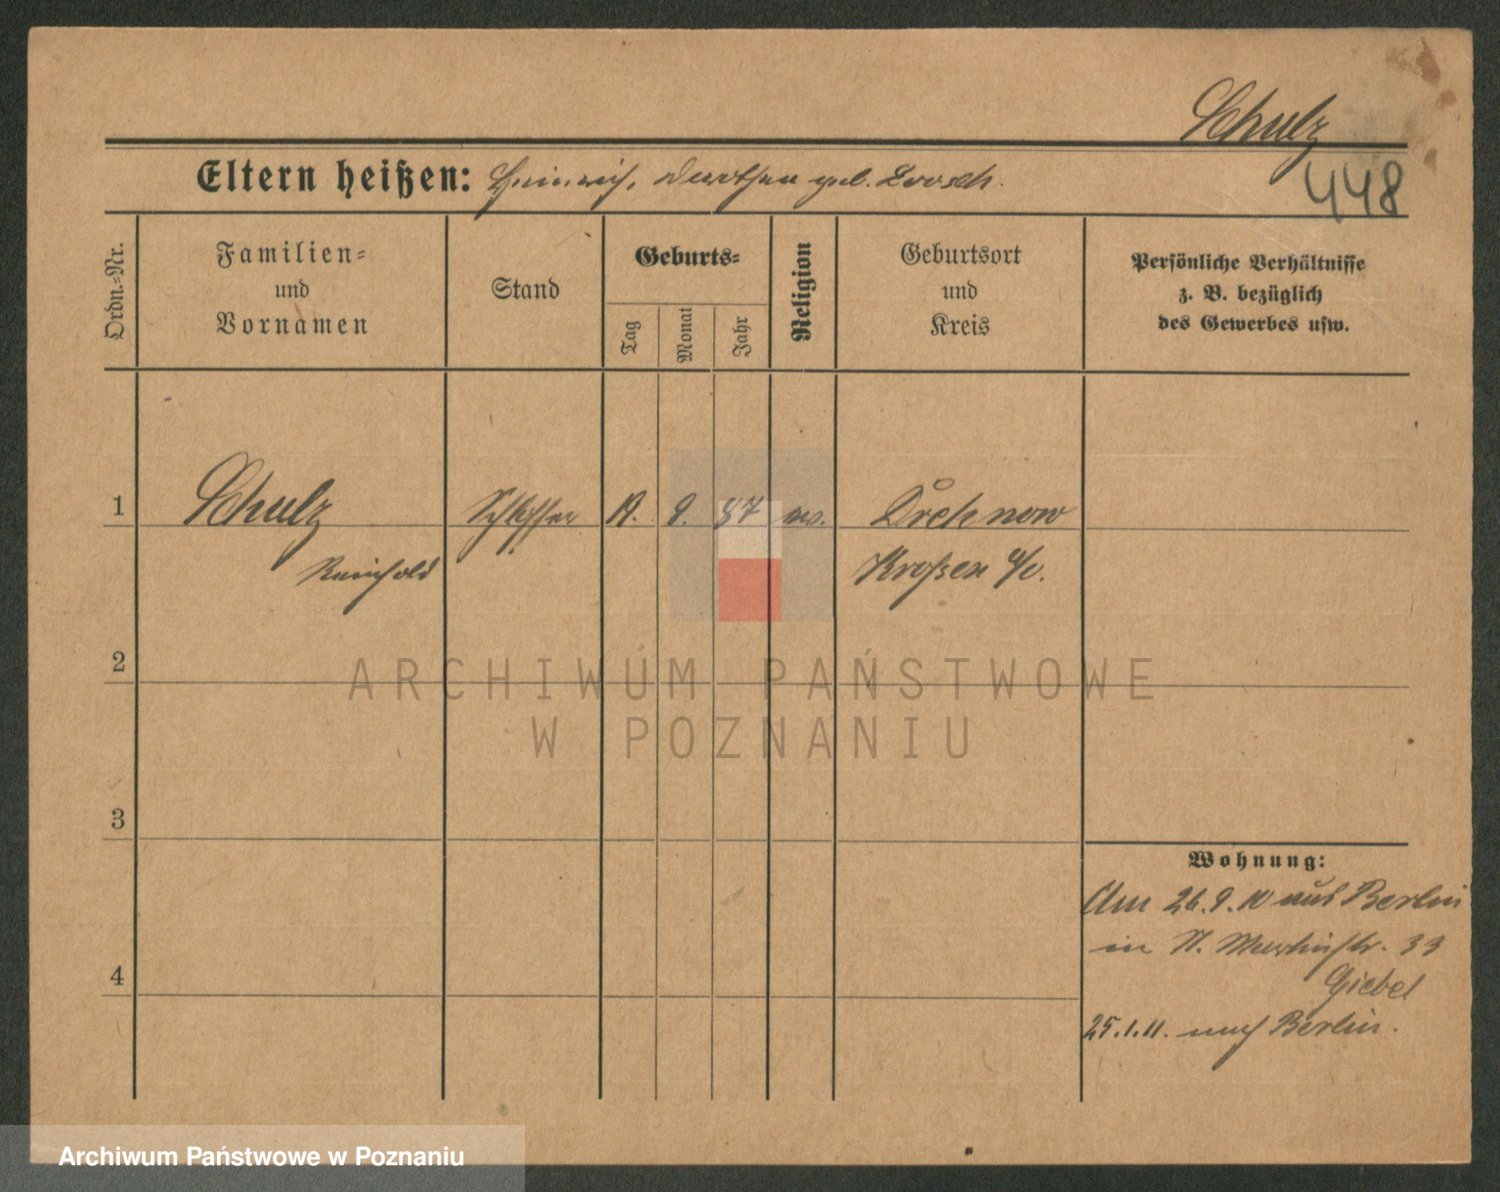 Schulz
448
Eltern heißen: Heinrich, Dorothea geb. Loosch.
Ordn.-Nr.
Familien-
und
Vornamen
Stand
Geburts-
Tag
Monat
Jahr
Religion
Geburtsort
und
Kreis
Persönliche Verhältnisse
z. B. bezüglich
des Gewerbes usw.
1
Schulz
Reinhold
19. 9. 87
Drehnow
Kroßen a/o.
2
3
4
Wohnung:
Am 26.9.10 aus Berlin
in St. Martinstr. 33
Giebel
25.1.11. nach Berlin.
ARCHIWUM PAŃSTWOWE
W POZNANIU
Archiwum Państwowe w Poznaniu